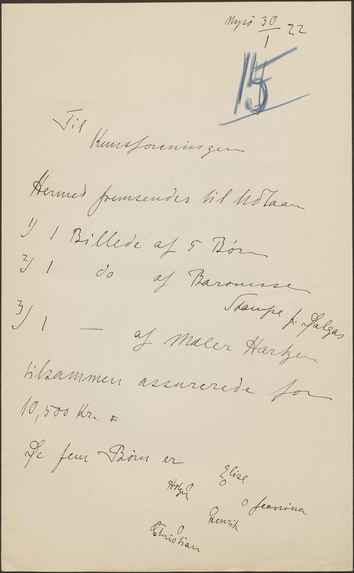 Nysø 30/1 22
15
Til
Kunstforeningen
Hermed fremsendes til Udlaan
1) 1 Billede af 5 Børn
2) 1 do af Baronesse
Stampe f. Dalgas
3) 1 — af Maler Hartzen
tilsammen assurerede for
10,500 Kr.
De fem Børn er
Elise
Holger
Jeanina
Henrik
Christian